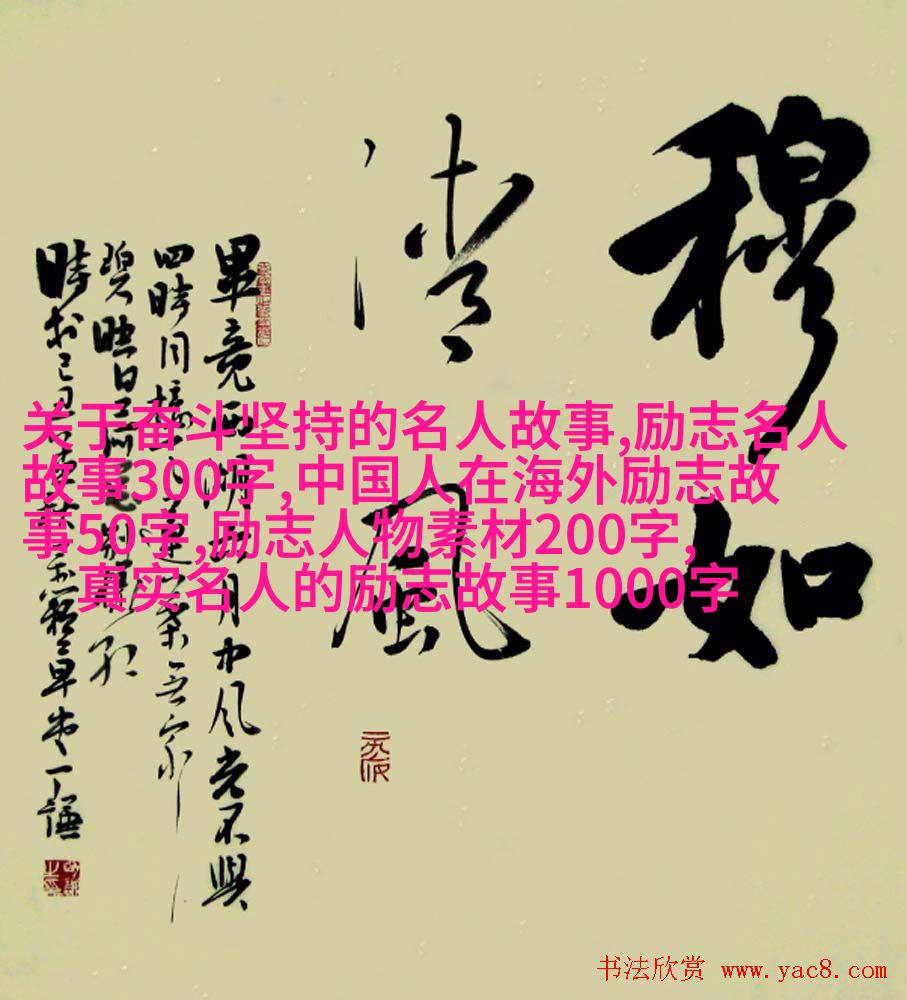 穆如
清風
畢竟西湖六月中风光不與
四時同接天蓮葉无窮
碧映日荷花别樣紅
关于奋斗坚持的名人故事,励志名人
故事300字,中国人在海外励志故
事50字,励志人物素材200字,
真实名人的励志故事1000字
书法欣赏 www.yac8.com